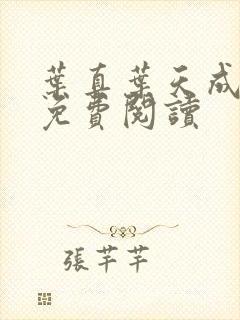 葉真葉天成
免費閱讀
張芊芊